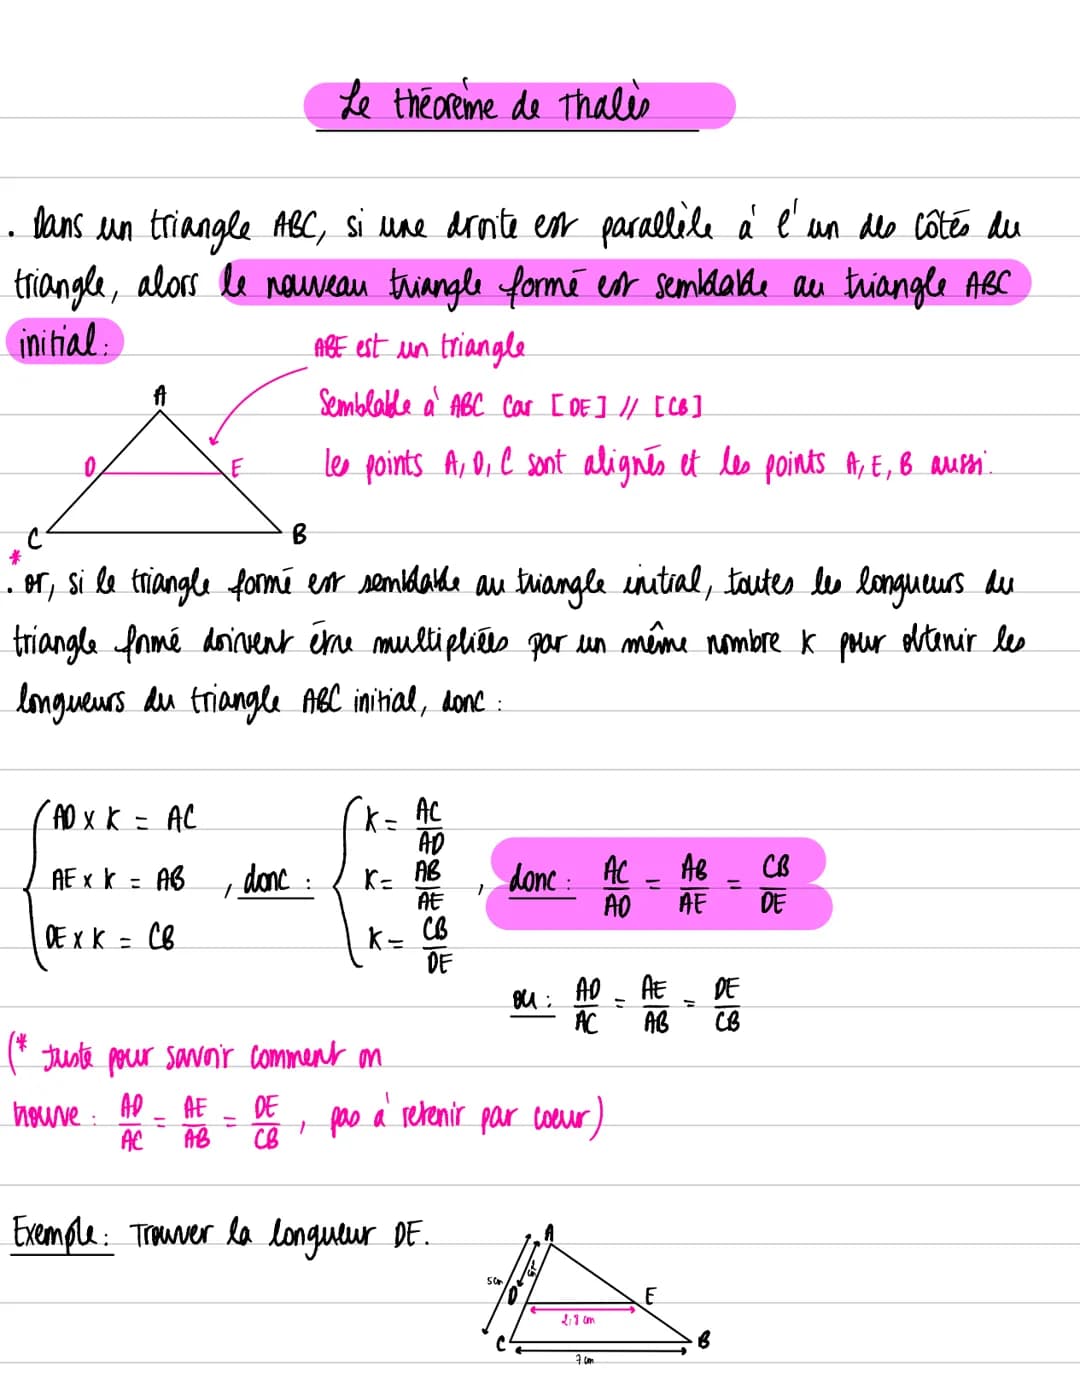 Le théorème de Thalès
. Dans un triangle ABC, si une droite est parallèle à l'un des côtés du
triangle, alors le nouveau triangle formé est semblable au triangle ABC
initial :
ABE est un triangle
Semblable à ABC Car [DE] // [CB]
les points A, D, C sont alignés et les points A, E, B aussi.
A
D
E
C
B
*
. or, si le triangle formé est semblable au triangle initial, toutes les longueurs du
triangle formé doivent être multipliées par un même nombre K pour obtenir les
longueurs du triangle ABC initial, donc :
AD x K = AC
AE x K = AB
DE x K = CB
, donc :
K = AC/AD
K = AB/AE
K = CB/DE
, donc : AC/AD = AB/AE = CB/DE
ou : AD/AC = AE/AB = DE/CB
(* Juste pour savoir comment on
trouve : AD/AC = AE/AB = DE/CB , pas à retenir par coeur)
Exemple : Trouver la longueur DE.
A
5cm
D
E
2,8 cm
C
B
7 cm